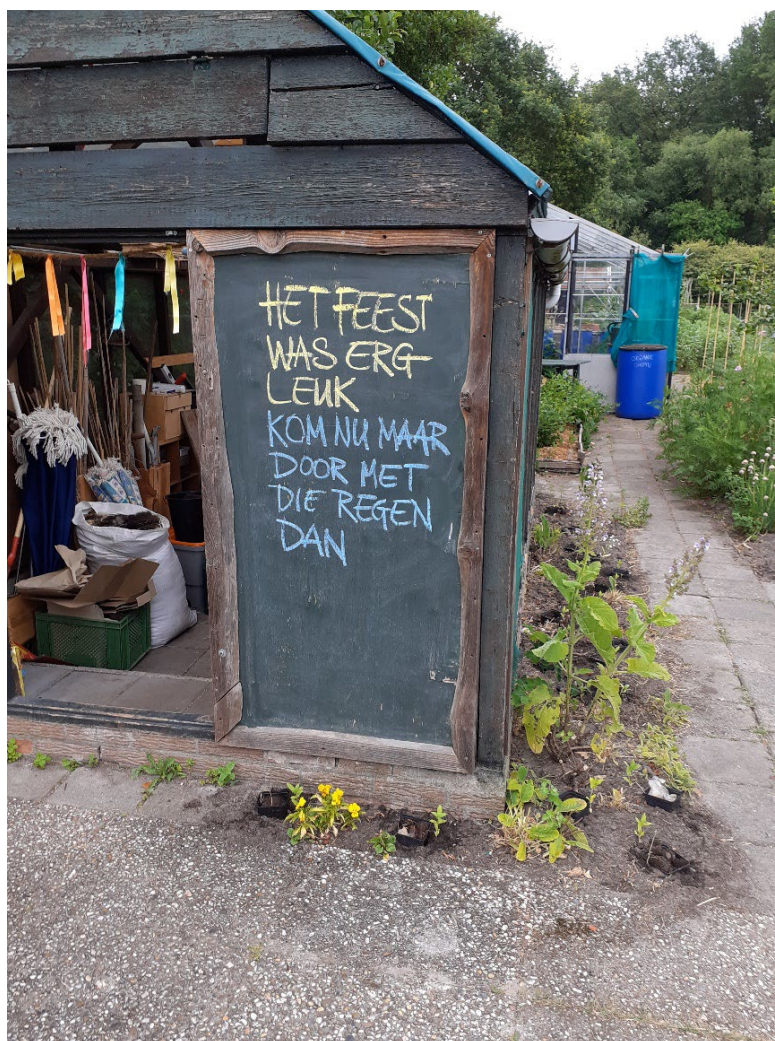 HET FEEST
WAS ERG
LEUK
KOM NU MAAR
DOOR MET
DIE REGEN
DAN